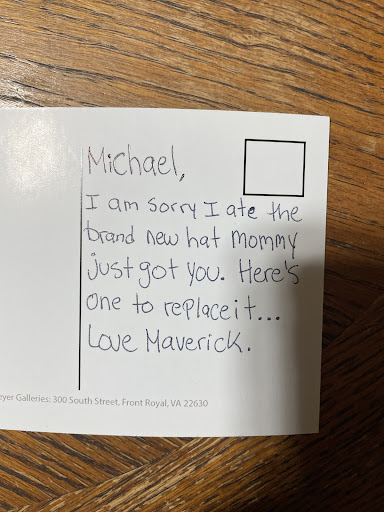 Michael,
I am sorry I ate the
brand new hat mommy
just got you. Here's
one to replace it...
Love Maverick.
eyer Galleries: 300 South Street, Front Royal, VA 22630